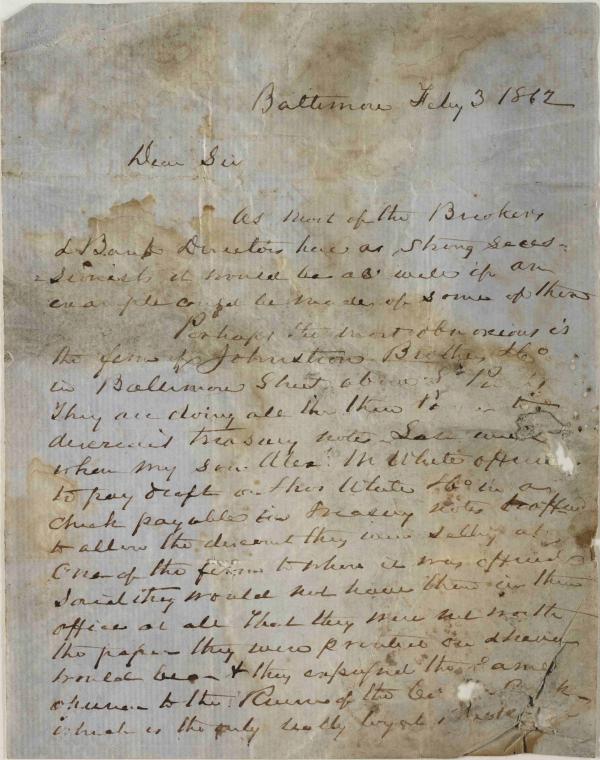 Baltimore Feby 3 1862
Dear Sir
As most of the Brokers
& Bank Directors here as strong seces=
=sionests it would be as well if an
example could be made of some of them
Perhaps the most obnoxious is
the firm of Johnston Brothers & Co
in Baltimore Street above St
They are doing all in their
discredit treasury notes Last week
when my son Alexr M White offered
to pay draft on Thos White & Co in a
check payable in Treasury notes & offered
to allow the discount they were selling at
One of the firm to whom it was offered
said they would not have them in their
office at all That they were not worth
the paper they were printed on & never
would be & they expressed the same
opinion to the Runner of the
which is the only really loyal